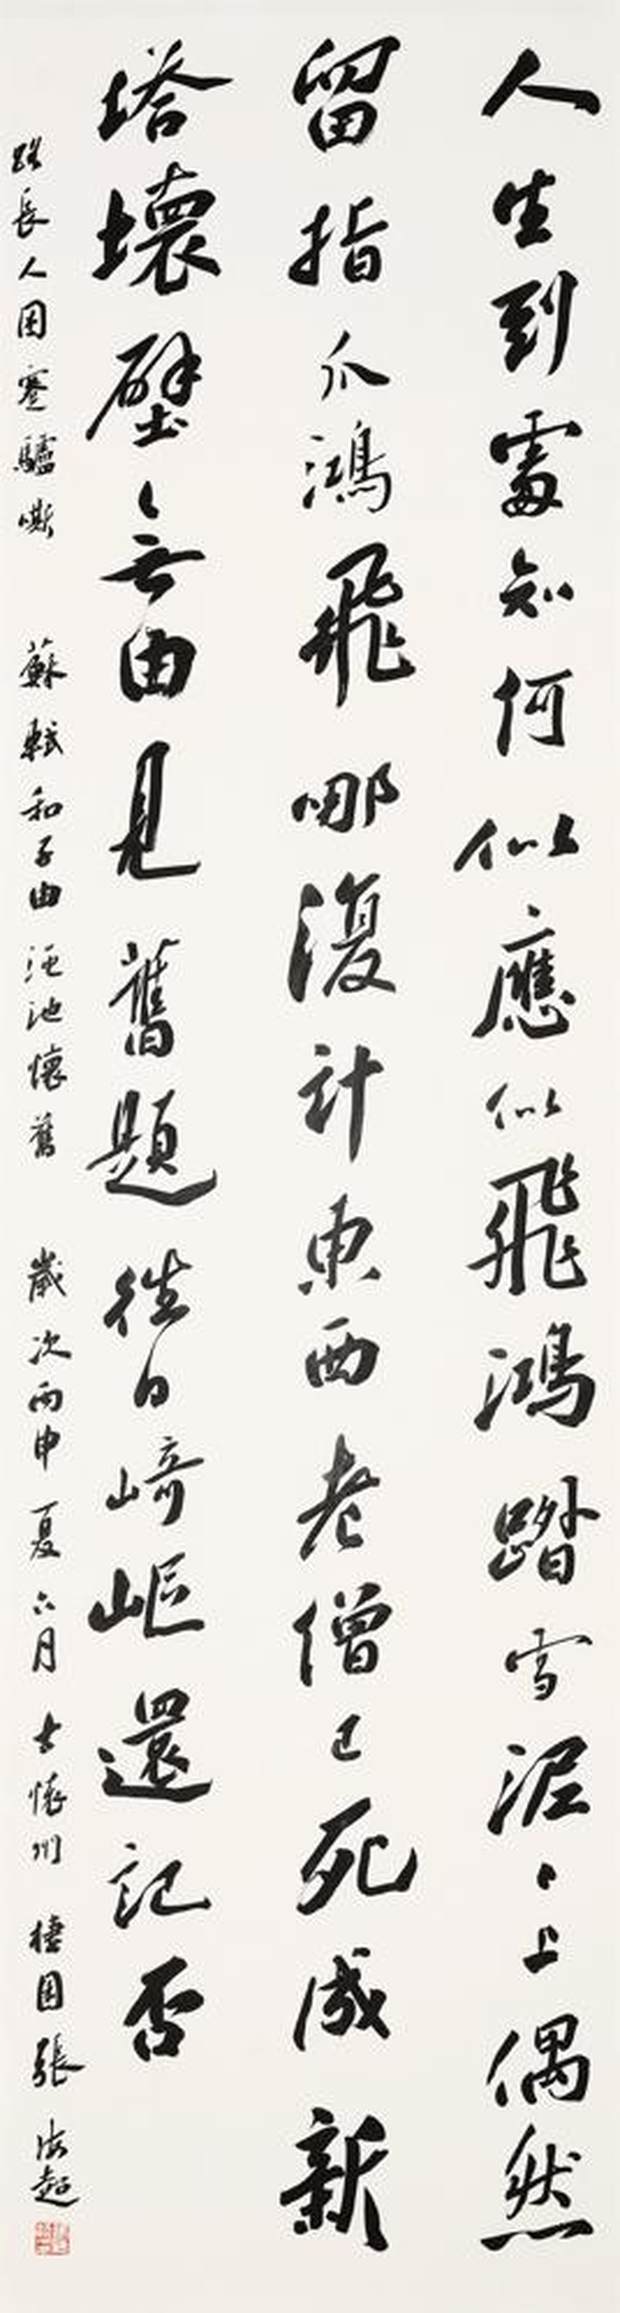 人生到處知何似應似飛鴻踏雪泥泥上偶然
留指爪鴻飛哪復計東西老僧已死成新
塔壞壁無由見舊題往日崎嶇還記否
路長人困蹇驢嘶 蘇軾和子由澠池懷舊 歲次丙申夏六月 古懷州 棲園張海超